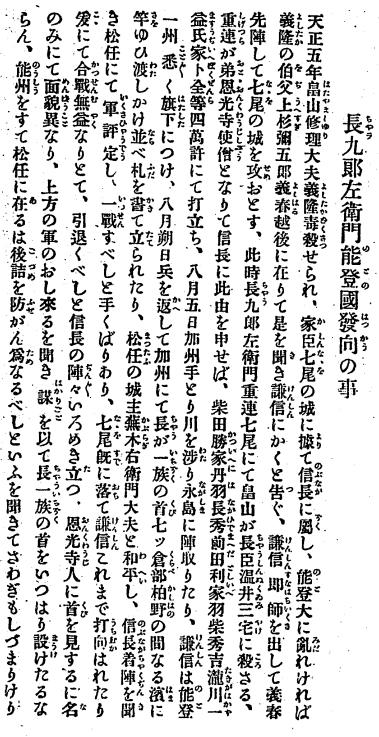 長九郎左衛門能登國發向の事
天正五年畠山修理大夫義隆毒殺せられ、家臣七尾の城に據て信長に屬し、能登大に亂れければ
義隆の伯父上杉彌五郎義春越後に在りて是を聞き謙信にかくと吿ぐ、謙信卽師を出して義春
先陣して七尾の城を攻おとす、此時長九郎左衛門重連七尾にて畠山が長臣溫井三宅に殺さる、
重連が弟恩光寺使僧となりて信長に此由を申せば、柴田勝家丹羽長秀前田利家羽柴秀吉瀧川一
益氏家ト全等四萬許にて打立ち、八月五日加州手とり川を涉り永島に陣取りたり、謙信は能登
一州悉く旗下につけ、八月朔日兵を返して加州にて長が一族の首七ッ倉部柏野の間なる濱に
竿ゆひ渡しかけ並べ札を書て立られたり、松任の城主蕪木右衛門大夫と和平し、信長着陣を聞
き松任にて軍評定し、一戰すべしと手くばりあり、七尾旣に落て謙信これまで打向はれたり
爰にて合戰無益なりとて、引退くべしと信長の陣々いろめき立つ、恩光寺人に首を見するに名
のみにて面貌異なり、上方の軍のおし來るを聞き謀を以て長一族の首をいつはり設けたるな
らん、能州をすて松任に在るは後詰を防がん爲なるべしといふを聞きてさわぎもしづまりけり